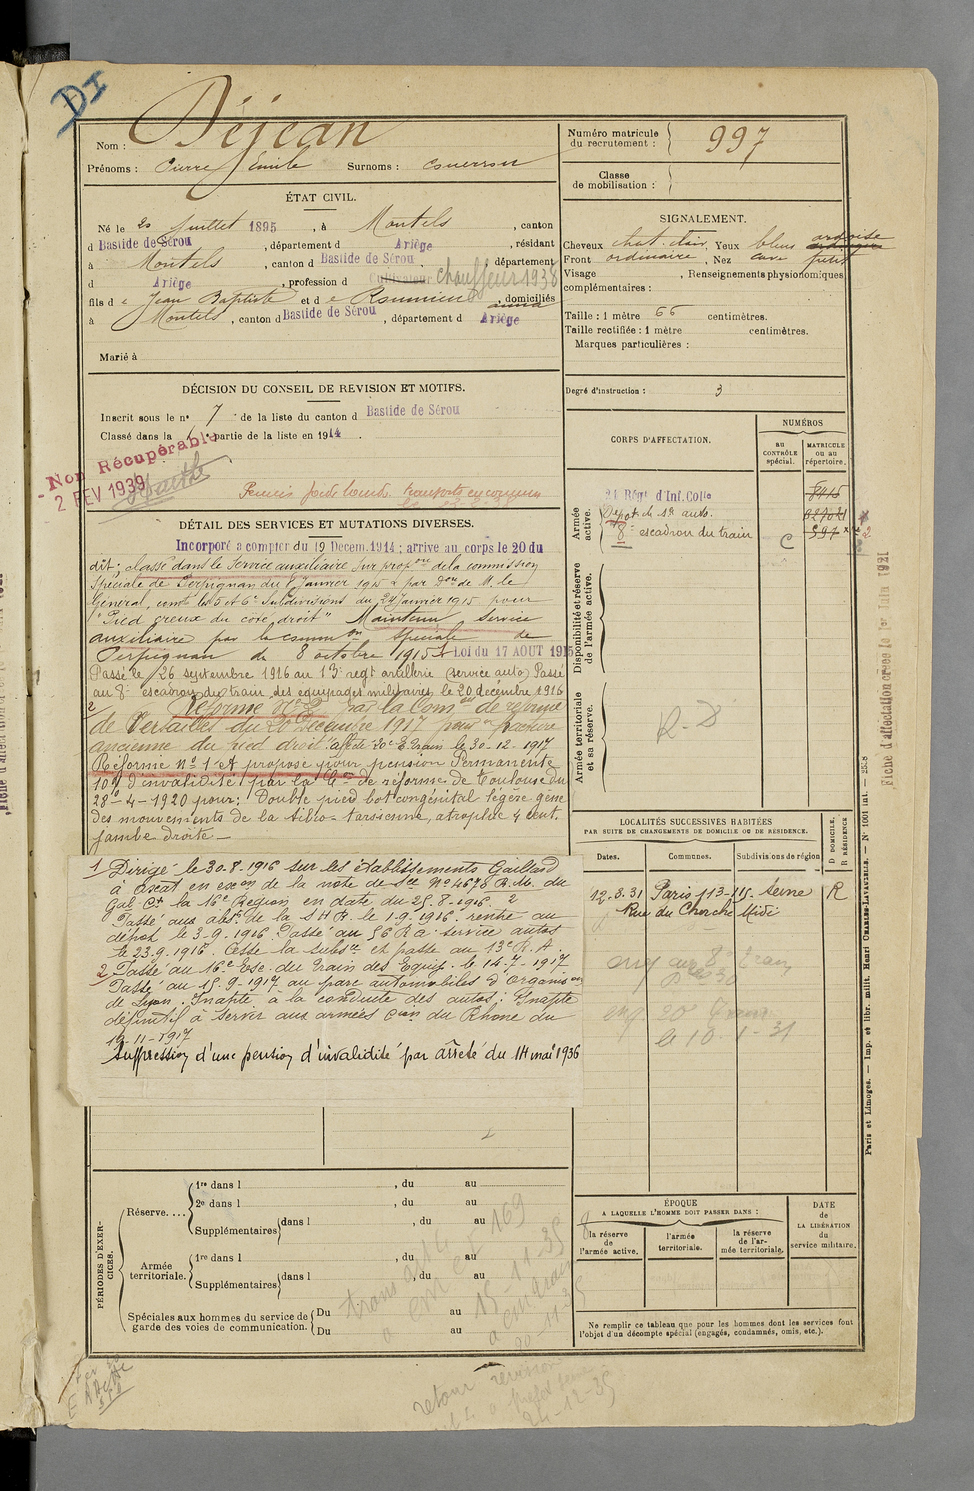 DI
Nom : Déjean
Prénoms : Pierre Emile Surnoms :
Numéro matricule du recrutement : 997
Classe de mobilisation :
ÉTAT CIVIL.
Né le 20 Juillet 1895, à Montels, canton
d Bastide de Sérou, département d Ariège, résidant
à Montels, canton d Bastide de Sérou, département
d Ariège, profession d Cultivateur chauffeur 1938
fils de Jean Baptiste et de Roumieu anna, domiciliés
à Montels, canton d Bastide de Sérou, département d Ariège
Marié à
SIGNALEMENT.
Cheveux chat. clair Yeux bleus ardoise
Front ordinaire, Nez cave petit
Visage , Renseignements physionomiques
complémentaires :
Taille : 1 mètre 66 centimètres.
Taille rectifiée : 1 mètre centimètres.
Marques particulières :
Degré d'instruction : 3
DÉCISION DU CONSEIL DE REVISION ET MOTIFS.
Inscrit sous le n° 7 de la liste du canton d Bastide de Sérou
Classé dans la partie de la liste en 1914.
Non Récupérable
2 FEV 1939
DÉTAIL DES SERVICES ET MUTATIONS DIVERSES.
Incorporé a compter du 19 Decem. 1914 : arrivé au corps le 20 du
dit ; classé dans le service auxiliaire sur propon de la commission
Spéciale de Perpignan du 8 Janvier 1915 & par Don de M. le
Général, comt les 5 et 6e Subdivisions du 24 Janvier 1915 pour
"Pied creux du côté droit" Maintenu Service
auxiliaire par la common spéciale de
Perpignan du 8 octobre 1915 Loi du 17 AOUT 1915
Passé le 26 septembre 1916 au 13e regt artillerie (service auto) Passé
au 8e escadron du train des equipages militaires le 20 décembre 1916
2 Réformé n° 2 par la Comon de réforme
de Versailles du 20 Décembre 1917 pour fracture
ancienne du pied droit affecté 20e E. Train le 30-12-1917
Réforme N° 1 et proposé pour pension Permanente
10% d'invalidité par la Con de réforme de Toulouse du
28-4-1920 pour : Double pied bot congénital légère gêne
des mouvements de la tibio-tarsienne, atrophie 4 cent.
jambe droite —
1 Dirigé le 30.8.1916 sur les Etablissements Gailland
à Axat en exon de la note de Sce N° 4678 R.M. du
Gal Ct la 16e Région en date du 25-8-1916. 2
Passé aux abs. de la S H R. le 1-9-1916. rentré au
dépôt le 3-9-1916. Passé au 56 R a. service autos
le 23.9.1916. Cesse la subsce et passe au 13e R.A.
2 Passé au 16e Esc. du Train des Equip. le 14-7-1917
Passé au 15-9-1917 au parc automobiles d'organison
de Lyon. Inapte à la conduite des autos : Inapte
définitif à servir aux armées Con du Rhône du
19-11-1917
Suppression d'une pension d'invalidité par arrêté du 14 mai 1936
CORPS D'AFFECTATION.
NUMÉROS
au CONTRÔLE spécial.
MATRICULE ou au répertoire.
Armée active.
24 Régt d'Inf. Colle 8415
Dépôt du 13e auto.
8e escadron du train C 597
Disponibilité et réserve de l'armée active.
Armée territoriale et sa réserve.
R-D
Fiche d'affectation créée le 1er Juin 1921
LOCALITÉS SUCCESSIVES HABITÉES
PAR SUITE DE CHANGEMENTS DE DOMICILE OU DE RÉSIDENCE.
D DOMICILE, R RÉSIDENCE
Dates. Communes. Subdivisions de région
12.3.31 Paris 113-115. Seine R
Rue du Cherche Midi
20e Train
le 10-1-31
PÉRIODES D'EXERCICES.
Réserve....
1re dans l , du au
2e dans l , du au
Supplémentaires dans l , du au
Armée territoriale.
1re dans l , du au
Supplémentaires dans l , du au
Spéciales aux hommes du service de garde des voies de communication.
Du au
Du au
15-11-35
retour revision
24-12-35
ÉPOQUE
A LAQUELLE L'HOMME DOIT PASSER DANS :
la réserve de l'armée active.
l'armée territoriale.
la réserve de l'armée territoriale.
DATE de LA LIBÉRATION du service militaire.
Ne remplir ce tableau que pour les hommes dont les services font
l'objet d'un décompte spécial (engagés, condamnés, omis, etc.).
Paris et Limoges. — Imp. et libr. milit. Henri CHARLES-LAVAUZELLE. — N° 1001 int. —